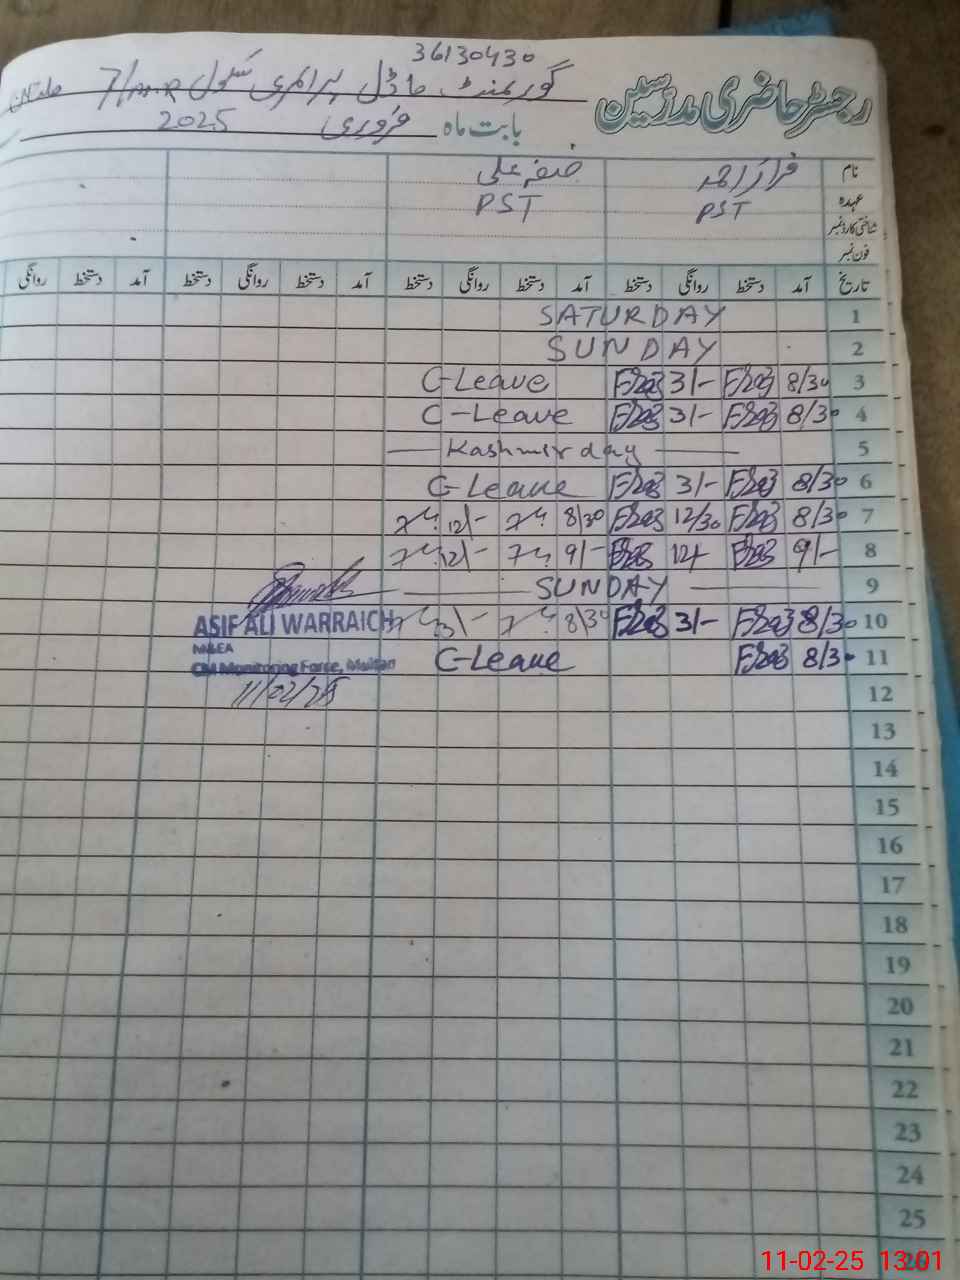 36130430
رجسٹر حاضری مدرسین گورنمنٹ ماڈل پرائمری سکول 7/M.R
بابت ماہ فروری 2025
نام فراز احمد علی
عہدہ PST PST
شناختی کارڈ نمبر
فون نمبر
تاریخ آمد دستخط روانگی دستخط آمد دستخط روانگی دستخط آمد دستخط روانگی دستخط آمد دستخط روانگی
1 SATURDAY
2 SUNDAY
3 8/30 Faraz 3/- Faraz C-Leave
4 8/30 Faraz 3/- Faraz C-Leave
5 Kashmir day
6 8/30 Faraz 3/- Faraz C-Leave
7 8/30 Faraz 12/30 Faraz 8/30 12/-
8 9/- Faraz 12/- Faraz 9/- 12/-
9 SUNDAY
10 8/30 Faraz 3/- Faraz 8/30 3/-
11 8/30 Faraz C-Leave
ASIF ALI WARRAICH
M&EA
CM Monitoring Force, Multan
11/02/25
12
13
14
15
16
17
18
19
20
21
22
23
24
25
26
11-02-25 13:01